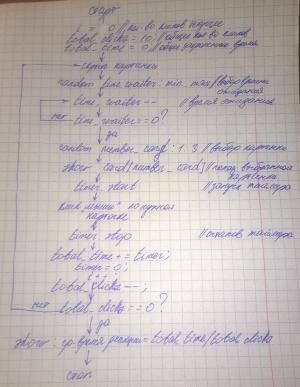 старт
= 0 // кол-во кликов
total_clicks = 10; // общее кол-во кликов
total_time = 0 // общее время
картинки
random time_waiter: min, max // выбор времени ожидания
time_waiter-- // время ожидания
нет time_waiter == 0?
да
random number_card: 1..3 // выбор картинки
show card[number_card] // показ выбранной картинки
timer start // запуск таймера
клик "мыши" по нужной карточке
timer stop // останов таймера
total_time += timer;
timer = 0;
total_clicks--;
нет total_clicks == 0?
да
show: время реакции = total time/total clicks
стоп